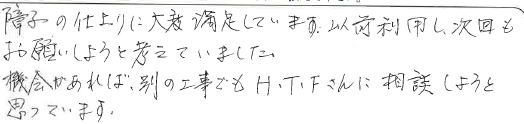 障子の仕上りに大変満足しています。以前利用し、次回も
お願いしようと考えていました。
機会があれば、別の工事でもH.T.Fさんに相談しようと
思っています。